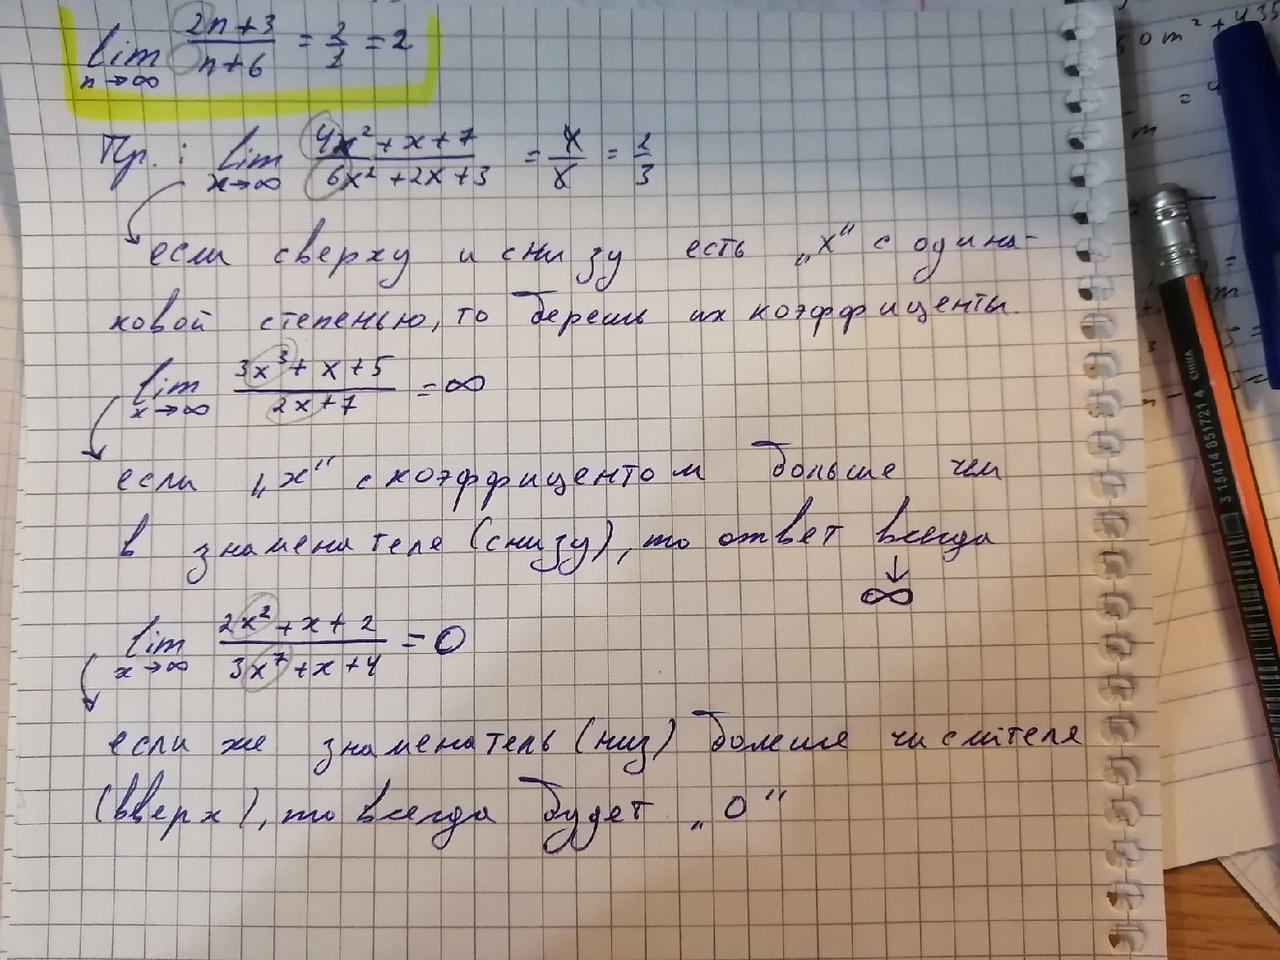 lim n→∞ (2n+3)/(n+6) = 2/1 = 2
Пр.: lim x→∞ (4x²+x+7)/(6x²+2x+3) = 4/6 = 2/3
если сверху и снизу есть „x“ с одина-
ковой степенью, то берешь их коэффиценты.
lim x→∞ (3x³+x+5)/(2x+7) = ∞
если „x“ с коэффицентом больше чем
в знаменателе (снизу), то ответ всегда
∞
lim x→∞ (2x²+x+2)/(3x⁷+x+4) = 0
если же знаменатель (низ) больше числителя
(вверх), то всегда будет „0“
50m²+435
3 15414 851721 4 CHINA